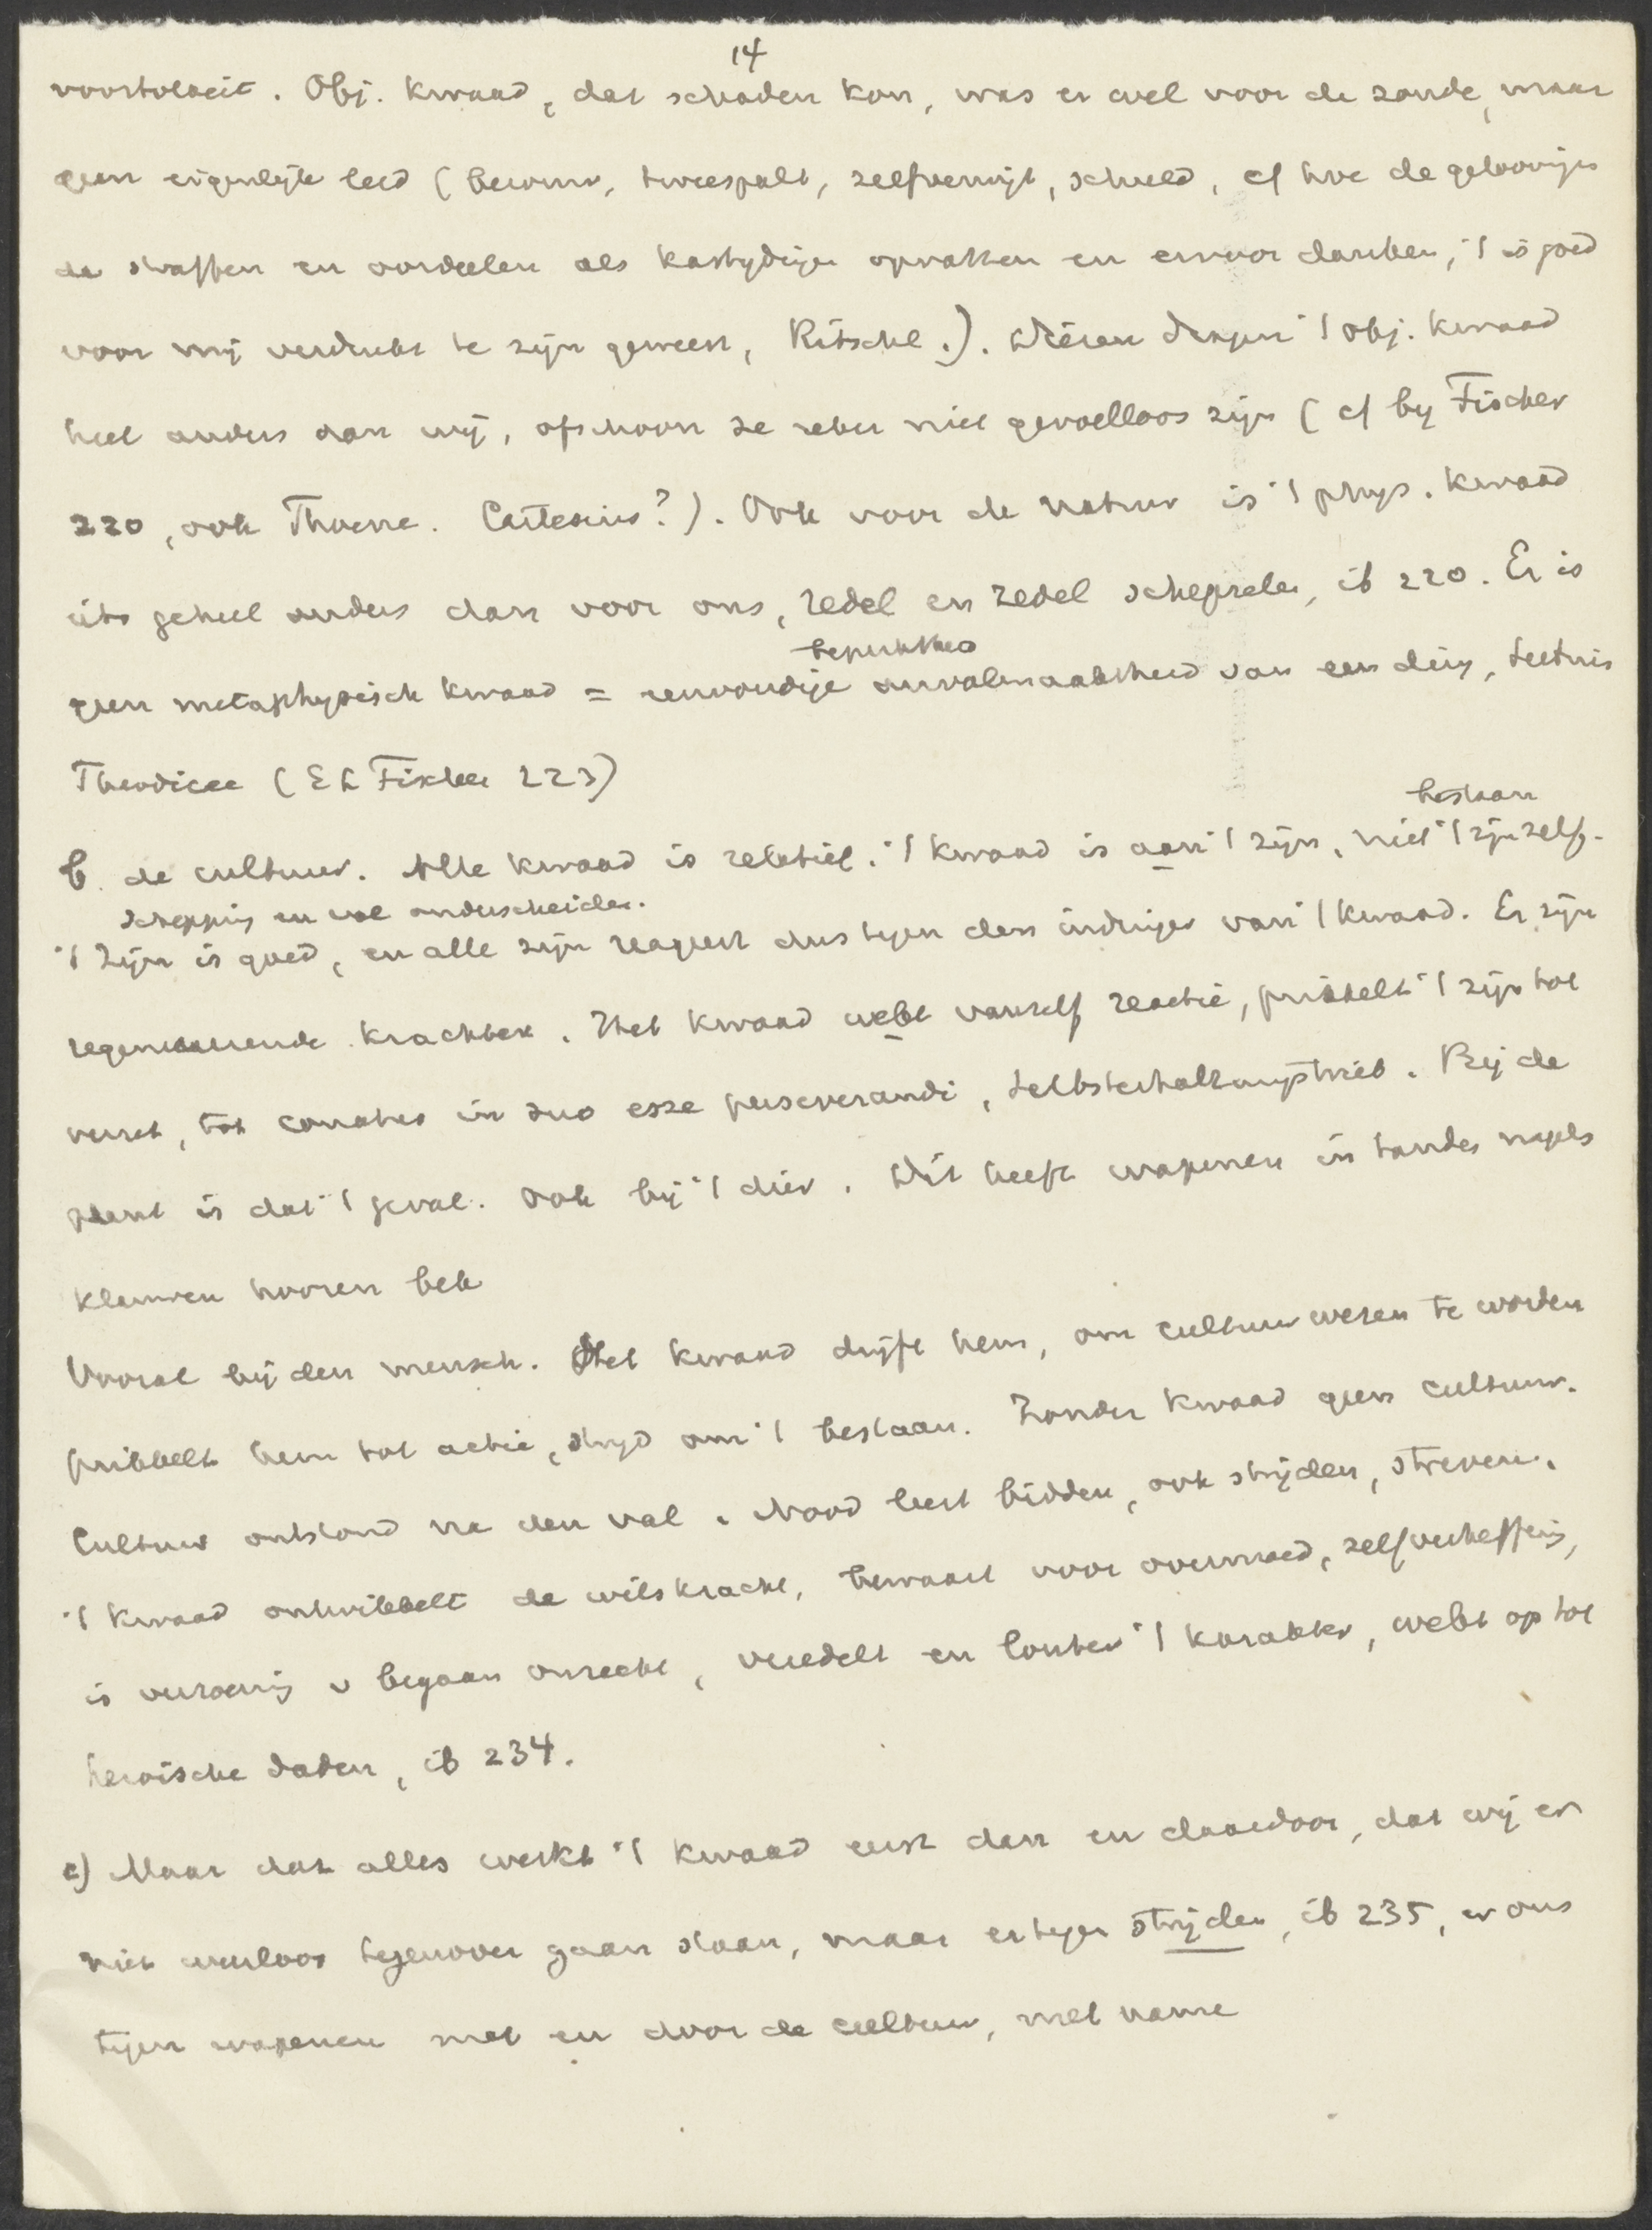 14
voortvloeit. Obj. kwaad, dat schaden kon, was er wel voor de zonde, maar
geen eigenlijk leed (berouw, tweespalt, zelfverwijt, schuld, cf hoe de geloovigen
de straffen en oordeelen als kastijdingen opvatten en ervoor danken, 't is goed
voor mij verdrukt te zijn geweest, Ritschl.). Dieren dragen 't obj. kwaad
heel anders dan wij, ofschoon ze zeker niet gevoelloos zijn (cf by Fischer
220, ook Thorne. Cartesius?). Ook voor de natuur is 't phys. kwaad
iets geheel anders dan voor ons, redel en zedel schepselen, ib 220. Er is
beperktheid
geen metaphysisch kwaad = eenvoudige onvolmaaktheid van een ding, Leibnis
Theodicee (E L Fischer 223)
bestaan
b. de cultuur. Alle kwaad is relatief. 't kwaad is aan 't zijn, niet 't zijn zelf.
schepping en val onderscheiden.
't Zijn is goed, en alle zijn reageert dus tegen den indringer van 't kwaad. Er zijn
regenereerende krachten. Het kwaad wekt vanzelf reactie, prikkelt 't zijn tot
verzet, tot conatus in suo esse perseverandi, Selbsterhaltungstrieb. Bij de
plant is dat 't geval. Ook bij 't dier. Dit heeft wapenen in tanden nagels
klauwen hooren bek
Vooral bij den mensch. Het kwaad drijft hem, om cultuurwezen te worden
prikkelt hem tot actie, strijd om 't bestaan. Zonder kwaad geen cultuur.
Cultuur ontstond na den val. Nood leert bidden, ook strijden, streven.
't kwaad ontwikkelt de wilskracht, bewaart voor overmoed, zelfverheffing,
is verzoening v begaan onrecht, veredelt en loutert 't karakter, wekt op tot
heroische daden, ib 234.
c) Maar dat alles werkt 't kwaad eerst dan en daardoor, dat wij er
niet weerloos tegenover gaan staan, maar ertegen strijden, ib 235, er ons
tegen wapenen met en door de cultuur, met name